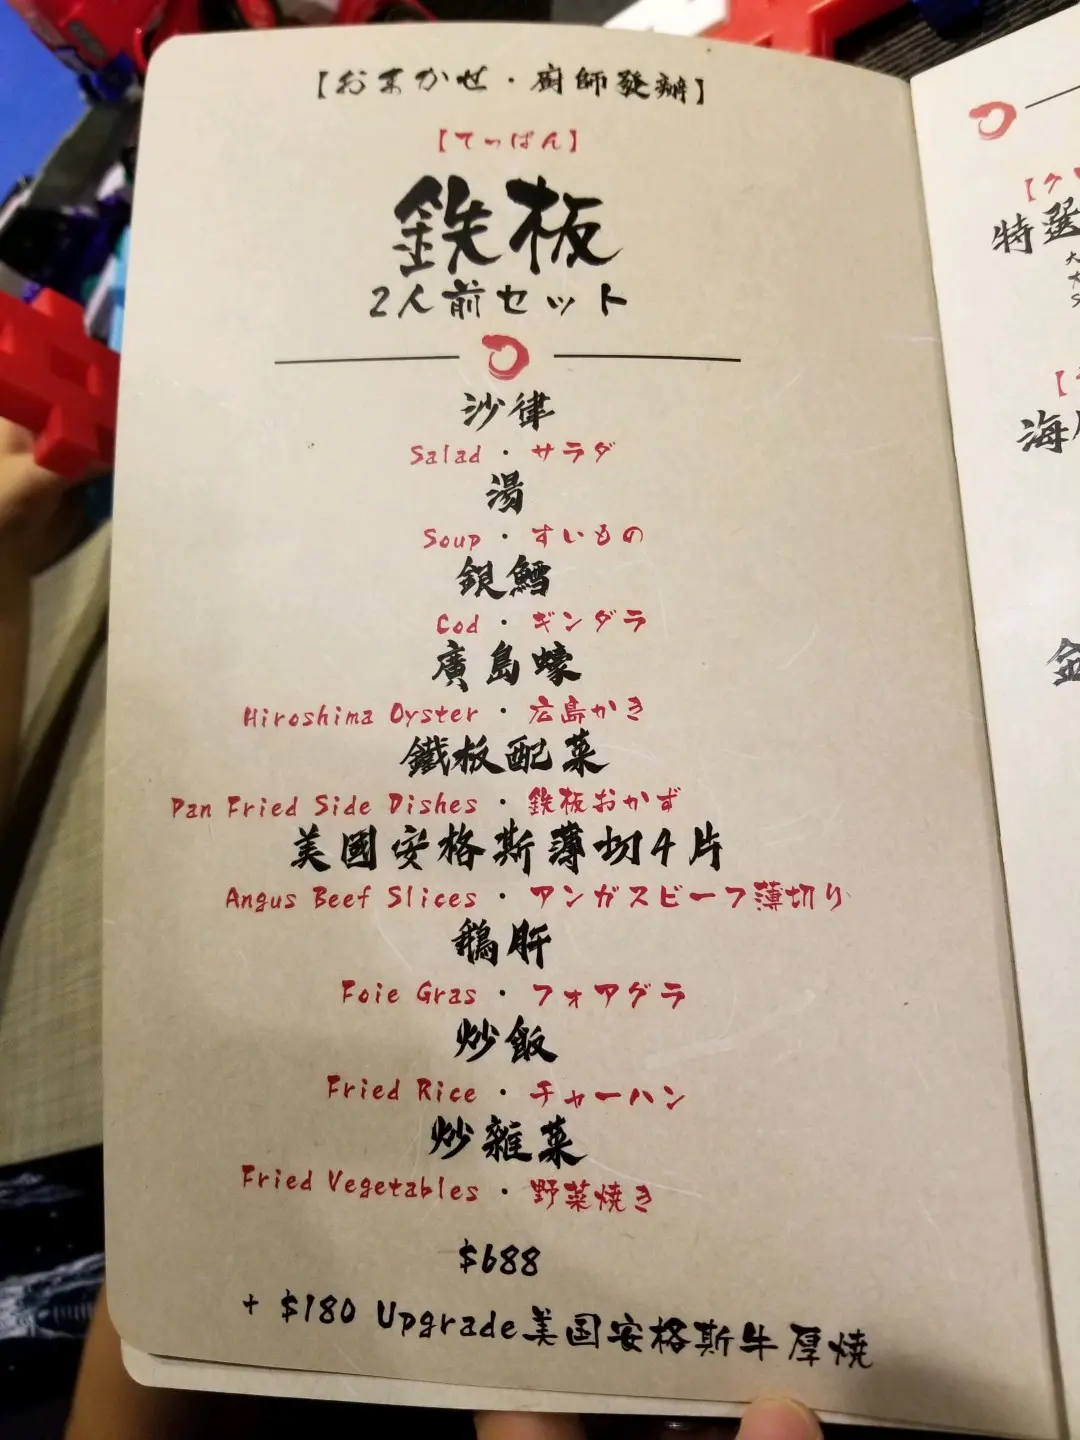 【おまかせ・廚師發辦】
【てっぱん】
鉄板
2人前セット
沙律
Salad・サラダ
湯
Soup・すいもの
銀鱈
Cod・ギンダラ
廣島蠔
Hiroshima Oyster・広島かき
鐵板配菜
Pan Fried Side Dishes・鉄板おかず
美國安格斯薄切4片
Angus Beef Slices・アンガスビーフ薄切り
鵝肝
Foie Gras・フォアグラ
炒飯
Fried Rice・チャーハン
炒雜菜
Fried Vegetables・野菜焼き
$688
+ $180 Upgrade美国安格斯牛厚燒
特選
海